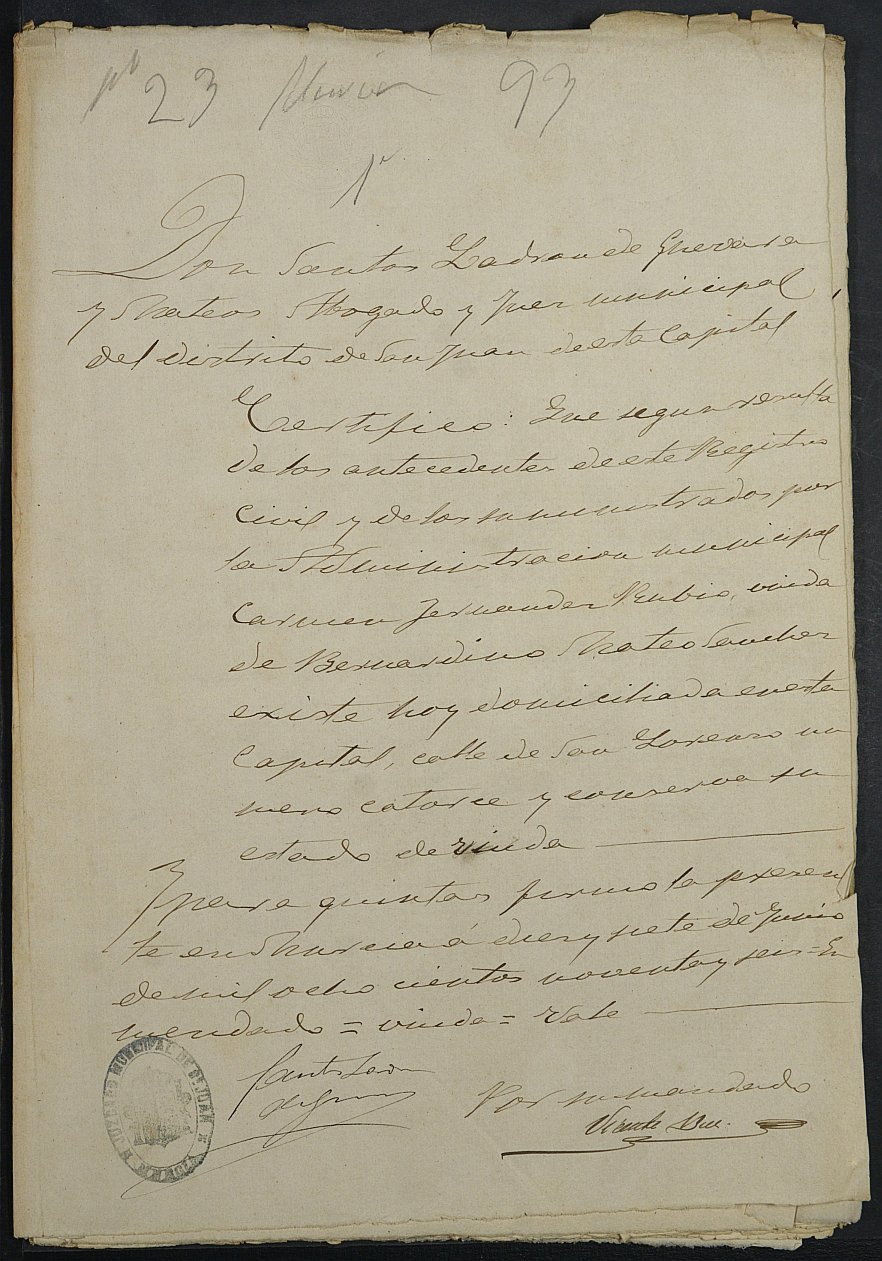 nº 23 Murcia 93
1º
Don Santos Ladron de Guevara
y Mateos Abogado y Juez municipal
del distrito de San Juan de esta Capital
Certifico: Que segun resulta
de los antecedentes de este Registro
civil y de los suministrados por
la Administracion municipal
Carmen Fernandez Rubio, viuda
de Bernardino Mateo Sanchez
existe hoy domiciliada en esta
Capital, calle de San Lorenzo nu
mero catorce y conserva su
estado de viuda
Y para quintas firmo la presen
te en Murcia á diez y siete de Junio
de mil ocho cientos noventa y seis = En
mendado = viuda = Vale
Santos Ladron
de Guevara
Por su mandado
Vicente
JUZGADO MUNICIPAL DE S. JUAN MURCIA